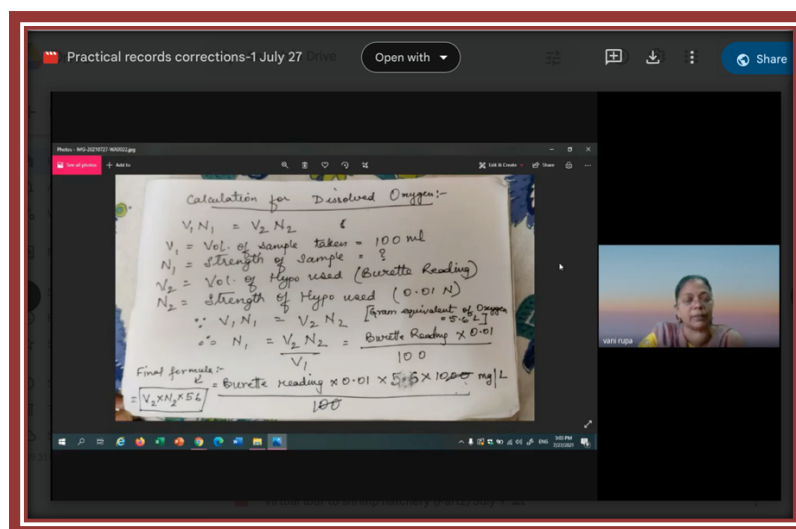 Practical records corrections-1 July 27 Drive
Open with
Share
Photos - IMG-20210727-WA0022.jpg
See all photos
Add to
Edit & Create
Share
Calculation for Dissolved Oxygen:-
V₁N₁ = V₂N₂
V₁ = Vol. of sample taken = 100 ml
N₁ = Strength of Sample = ?
V₂ = Vol. of Hypo used (Burette Reading)
N₂ = Strength of Hypo used (0.01 N)
[Gram equivalent of Oxygen
= 5.6 L]
∵ V₁N₁ = V₂N₂
∴ N₁ = V₂N₂ / V₁ = Burette Reading × 0.01 / 100
Final formula:-
= V₂×N₂×56
= Burette reading × 0.01 × 5.6 × 1000 mg/L
100
vani rupa
ENG
3:03 PM